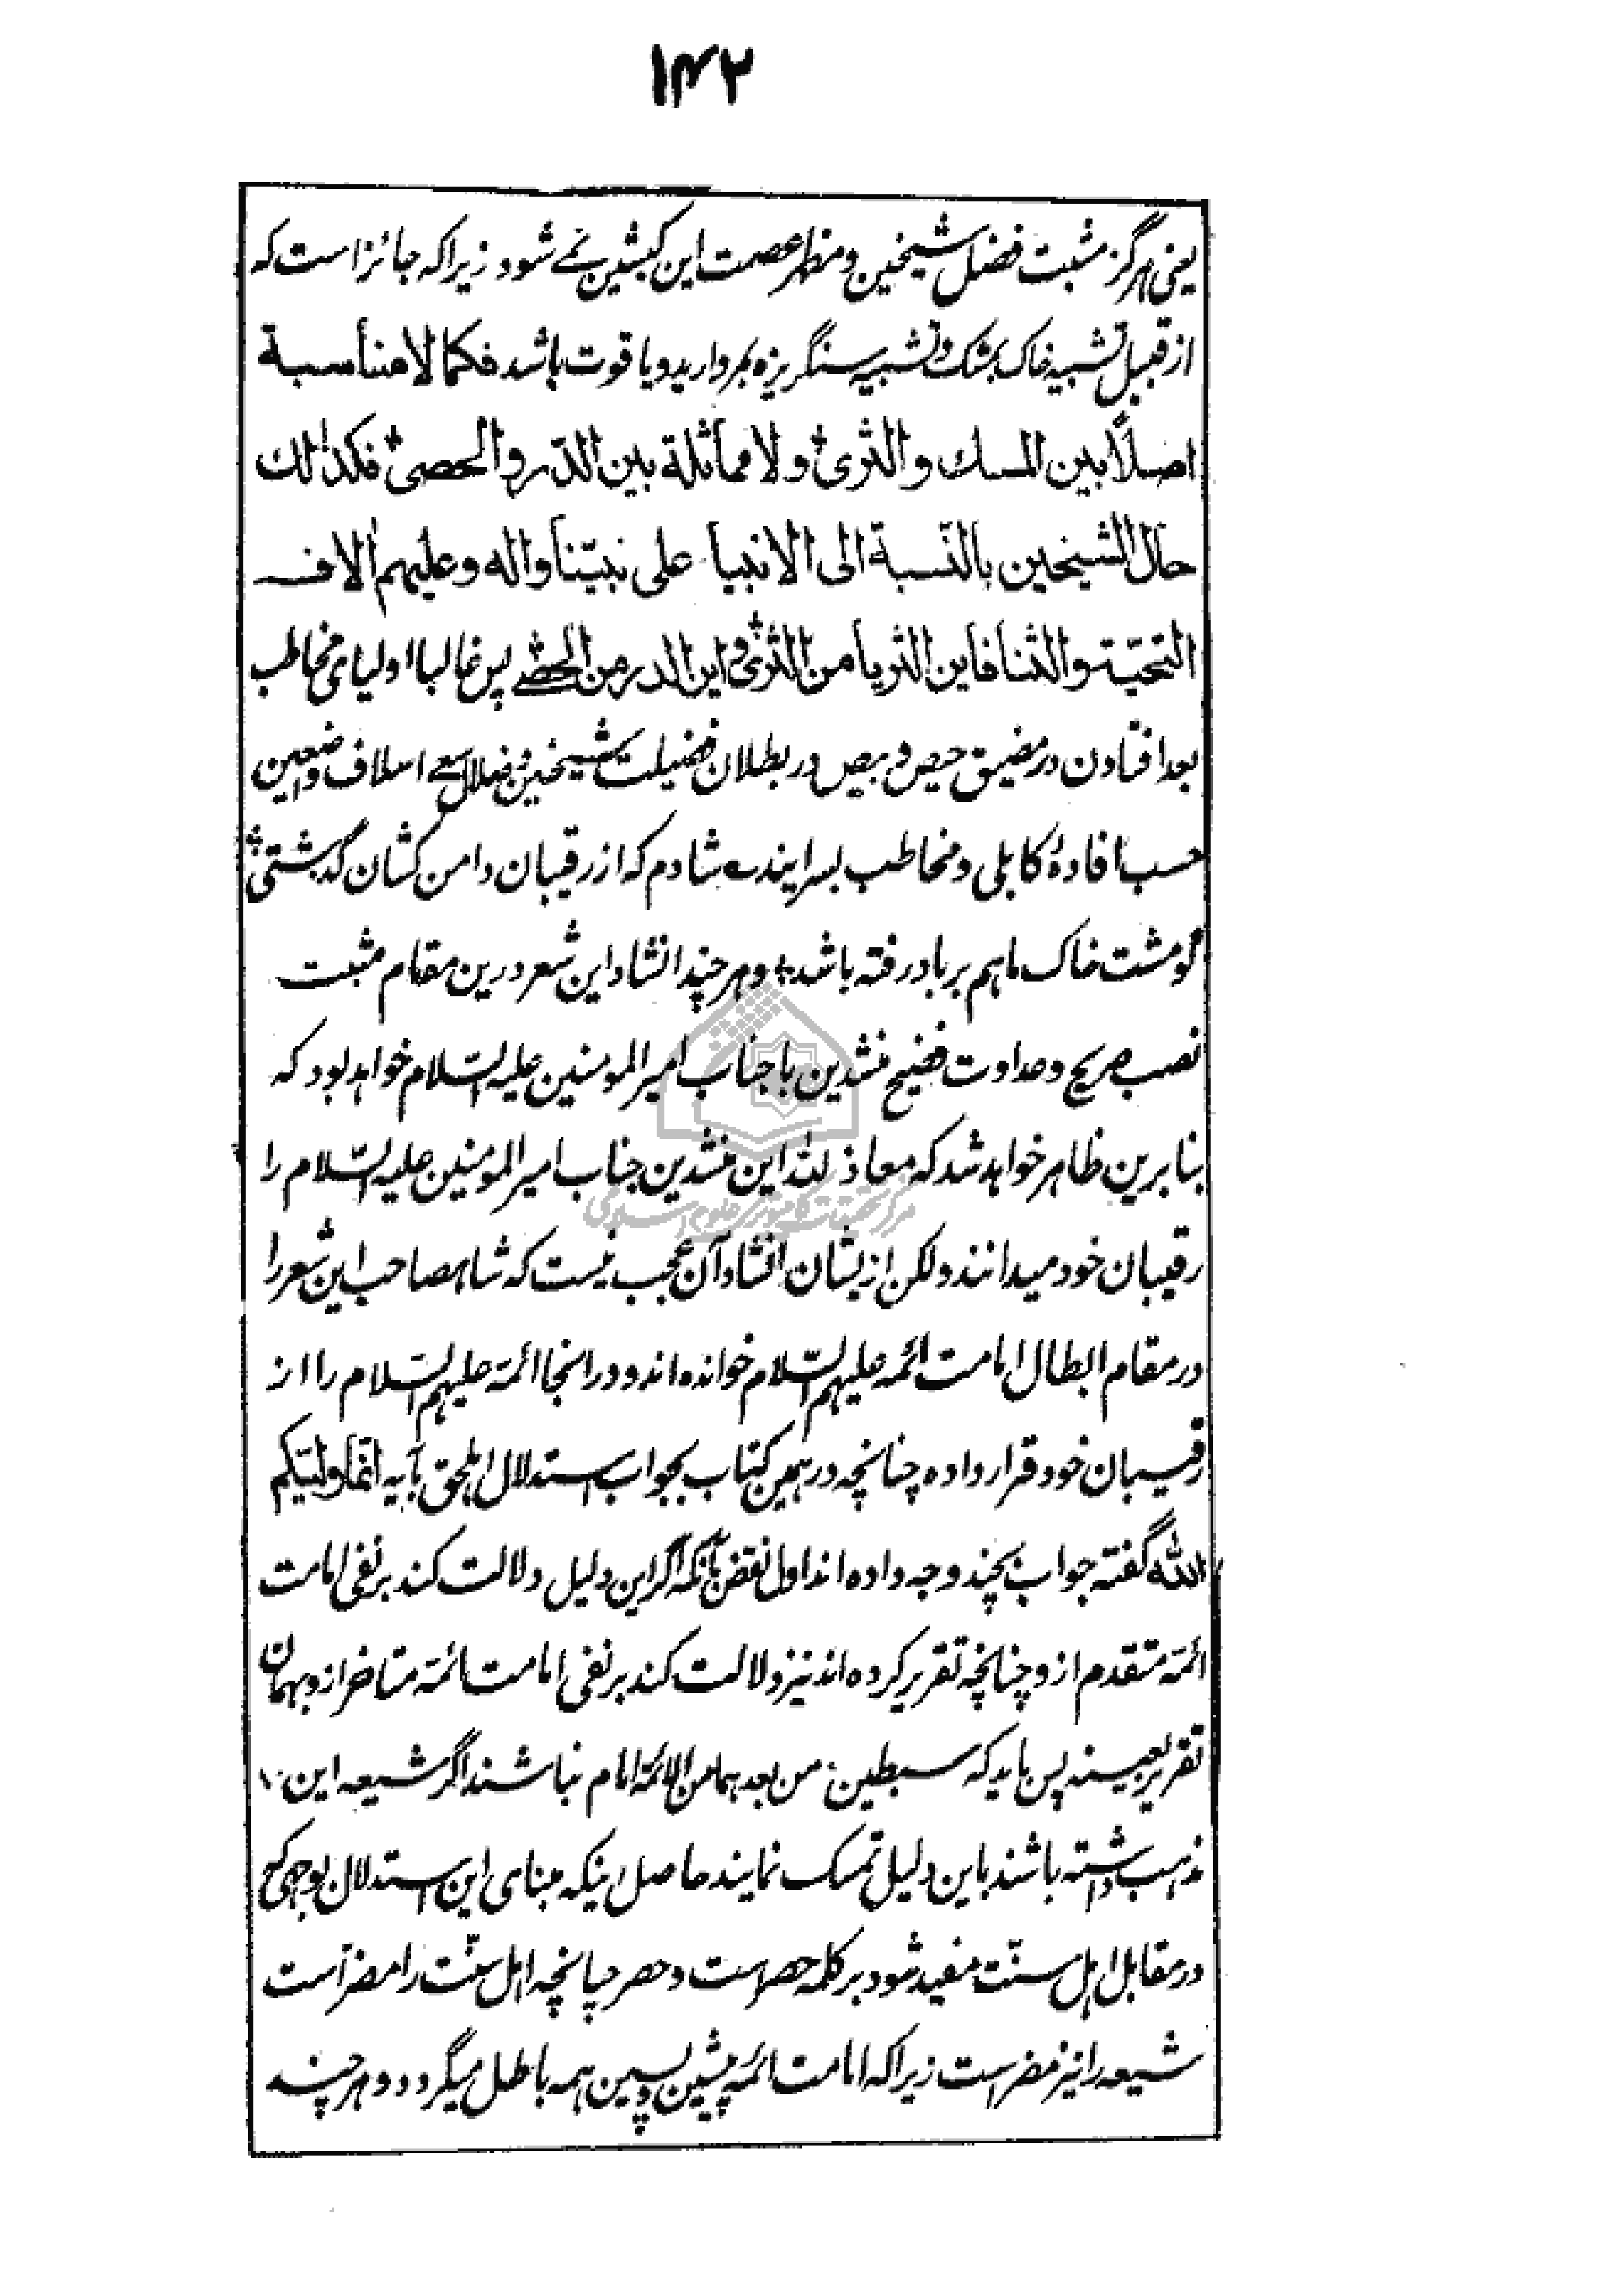 ۱۴۲
یعنی هرگز مثبت فضل شیخین و مظهر عصمت این کبشین نمے شود زیراکه جائز است که
از قبیل تشبیه خاک بمشک و تشبیه سنگریزه بمروارید و یاقوت باشد فکما لا مناسبة
اصلاً بین المسك والثریٰ ولا مماثلة بین الدّر والحصیٰ فکذلك
حال الشیخین بالنّسبة الی الانبیا علی نبیّنا واله وعلیهم الاف
التحیّة والثنا فاین الثریا من الثری واین الدر من الحصے پس غالبا اولیای مخاطب
بعد افتادن در مضیق حیص و بیص در بطلان فضیلت شیخین و ضلال سعے اسلاف واضعین
حسب افادهٔ کابلی و مخاطب بسرایند ؎ شادم که از رقیبان دامن کشان گذشتی؛
گو مشت خاک ما هم برباد رفته باشد؛ و هر چند انشاد این شعر درین مقام مثبت
نصب صریح و عداوت فضیح منشدین با جناب امیر المومنین علیه السّلام خواهد بود که
بنابرین ظاهر خواهد شد که معاذ لله این منشدین جناب امیر المومنین علیه السّلام را
رقیبان خود میدانند ولکن ازیشان انشاد آن عجب نیست که شاهصاحب این شعر را
در مقام ابطال امامت ائمه علیهم السّلام خوانده اند و در انجا ائمة علیهم السّلام را از
رقیبان خود قرار داده چنانچه در همین کتاب بجواب استدلال اهلحق بآیه انّما ولیّکم
الله گفته جواب بچند وجه داده اند اول نقض بآنکه اگر این دلیل دلالت کند بر نفی امامت
ائمة متقدم ازو چنانچه تقریر کرده اند نیز دلالت کند بر نفی امامت ائمة متاخر ازو بهمان
تقریر بعینه پس باید که سبطین و من بعدهما من الائمة امام نباشند اگر شیعه این
مذهب داشته باشند باین دلیل تمسک نمایند حاصل اینکه مبنای این استدلال بوجهی که
در مقابل اهل سنّت مفید شود بر کلمه حصر است و حصر چنانچه اهل سنّت را مضرّ است
شیعه را نیز مضر است زیراکه امامت ائمه پیشین و پسین همه باطل میگردد و هر چند